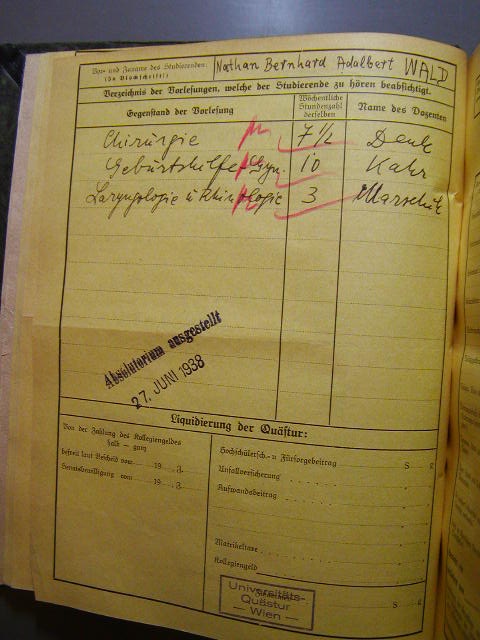 Vor- und Zuname des Studierenden: Nathan Bernhard Adalbert WALD
(In Blockschrift)
Verzeichnis der Vorlesungen, welche der Studierende zu hören beabsichtigt.
Gegenstand der Vorlesung Wöchentliche Stundenzahl derselben Name des Dozenten
Chirurgie 7 1/2 Denk
Geburtshilfe-Gyn. 10 Kahr
Laryngologie u Rhinologie 3 Marschik
Absolutorium ausgestellt
27. JUNI 1938
Liquidierung der Quästur:
Von der Zahlung des Kollegiengeldes
halb — ganz
befreit laut Bescheid vom 19 Z.
Senatsbewilligung vom 19 Z.
Hochschülersch.- u Fürsorgebeitrag S g
Unfallversicherung
Aufwandsbeitrag
Matrikeltaxe
Kollegiengeld
S g
Universitäts-
Quästur
— Wien —